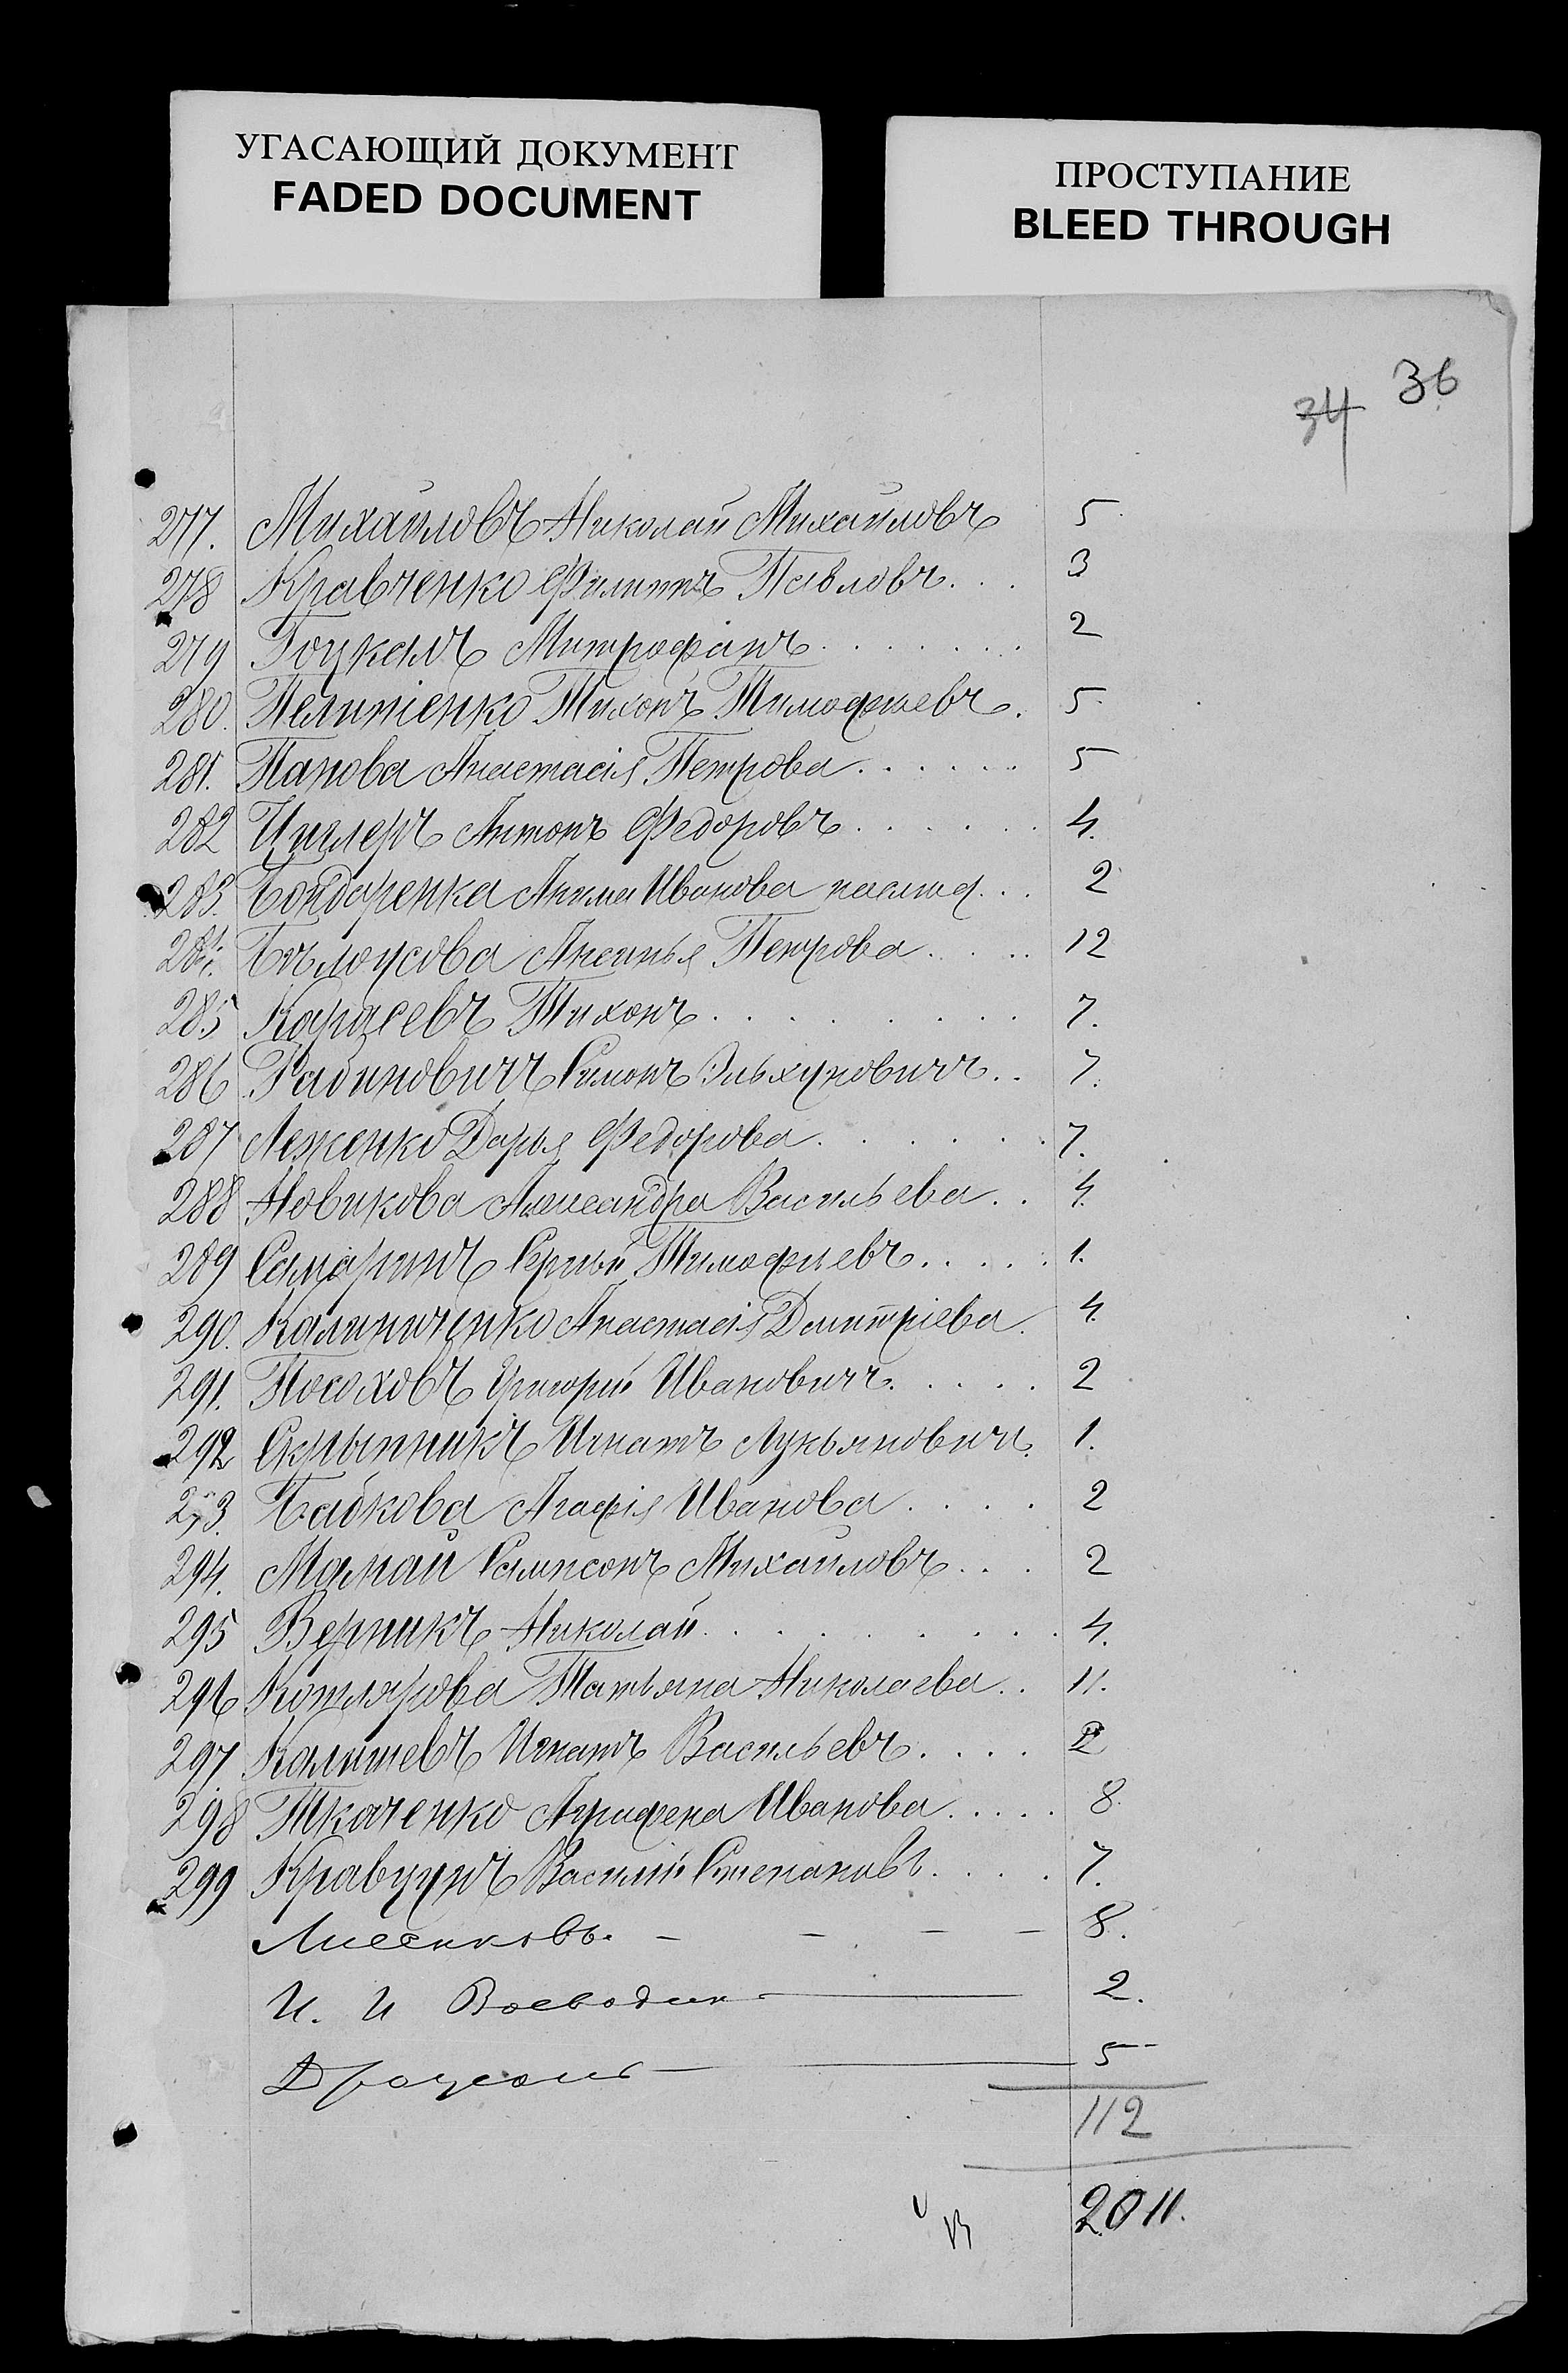 УГАСАЮЩИЙ ДОКУМЕНТ
FADED DOCUMENT
ПРОСТУПАНИЕ
BLEED THROUGH
34 36
277. Михайловъ Николай Михайловъ 5
278 Кравченко Филиппъ Павловъ. . . 3
279 Гоцкалъ Митрофанъ. . . . . . . . 2
280. Пелипенко Тихонъ Тимофѣевъ. 5
281. Панова Анастасія Петрова . . . . . . 5
282 Циглеръ Антонъ Федоровъ . . . . . . 4.
283. Бондаренка Анна Иванова . . . 2
284. Бѣлоусова Аксинья Петрова . . . . 12
285 Карасевъ Тихонъ . . . . . . . . 7.
286 Рабиновичъ Симонъ Эльхуновичъ. . 7.
287 Леженко Дарья Федорова . . . . . . 7.
288 Новикова Александра Васильева. . 4.
289 Самаринъ Сергѣй Тимофѣевъ . . . . . 1.
290. Калиниченко Анастасія Дмитріева. 4.
291. Посоховъ Григорій Ивановичъ. . . . . 2
292 Скрыпникъ Игнатъ Лукьяновичъ. 1.
293. Бабкова Агафія Иванова . . . . 2
294. Мамай Самисонъ Михайловъ . . . 2
295 Верникъ Николай. . . . . . . . . 4.
296 Котлярова Татьяна Николаева . . 11.
297 Калишевъ Игнатъ Васильевъ . . . . 2
298 Ткаченко Агрифена Иванова . . . . . 8.
299 Кравцунъ Василій Степановъ. . . . 7.
Лисенковъ. — — — — 8.
И. И Воеводин 2.
5
112
2011.